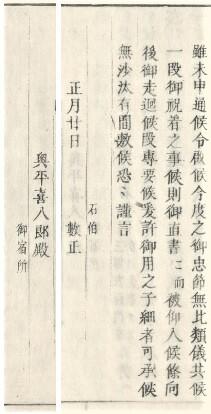 雖未申通候令啟候今度之御忠節無比類儀其候
一段御祝着之事候則御直書ニ而被仰入候條向
後御走廻候段專要候爰許御用之子細者可承候
無沙汰有間敷候恐〻謹言
正月廿日
石伯
數正
奥平喜八郎殿
御宿所